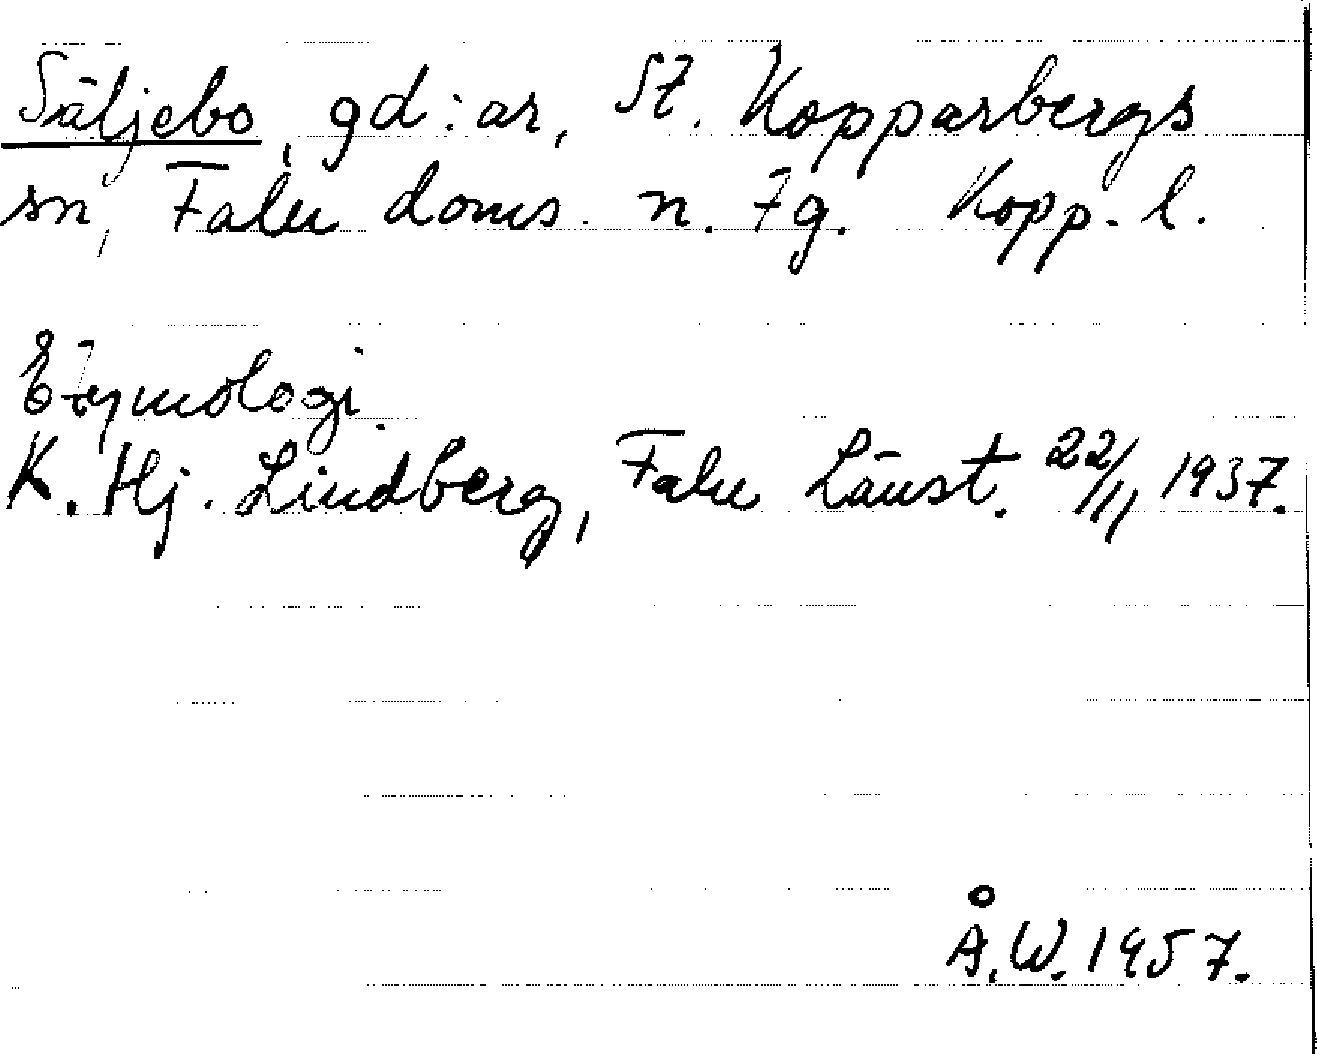 Säljebo, gd:ar, St. Kopparbergs
sn, Falu doms. n. tg. Kopp. l.
Etymologi.
K. Hj. Lindberg, Falu Länst. 22/11 1937.
Å.W. 1957.